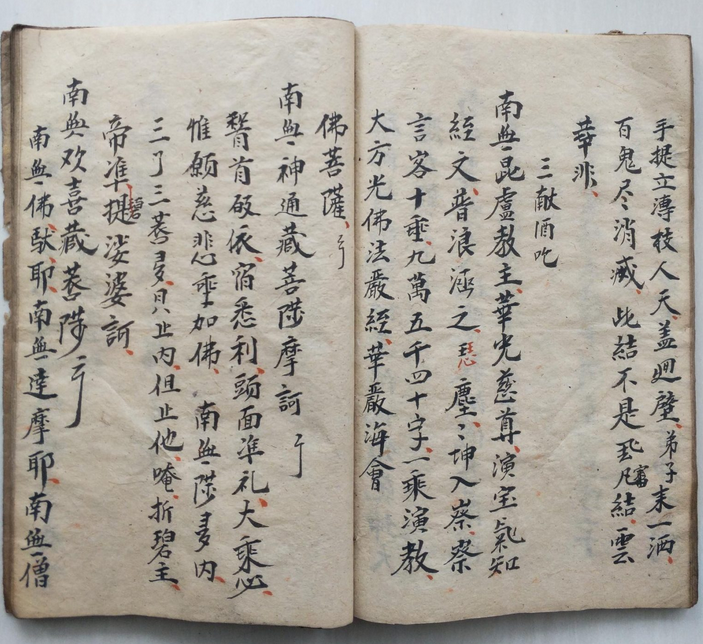 手提立溥枝人天盖廻壁弟子来一洒
百鬼尽消滅此結不是凡結雲
華非
三献酒吃
南無昆盧教主華光慈尊演宝氣知
經文普浪涵之琵塵〻坤入寮寮
言客十重九萬五千四十字一乘演教
大方光佛法嚴經華嚴海會
佛菩薩
南無神通藏菩陸摩訶
稽首皈依宿悉利頭面準礼大乘必
惟願慈悲垂加佛南無陸多内
三了三菩多只止内但止他唵折碧主
帝準提碧娑婆訶
南無欢喜藏菩陟
南無佛馱耶南無達摩耶南無僧